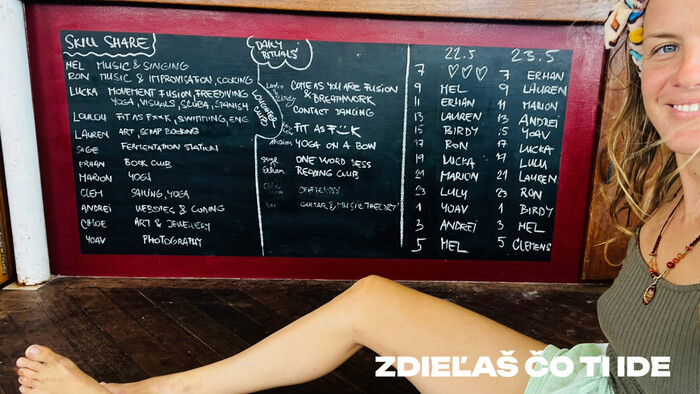 SKILL SHARE
MEL MUSIC & SINGING
RON MUSIC & IMPROVISATION, COOKING
LUCKA MOVEMENT FUSION, FREEDIVING
YOGA, VISUALS, SCUBA, SPANISH
LOULOU FIT AS F**K, SWIMMING, ENG
LAUREN ART, SCRAP BOOKING
SAGE FERMENTATION STATION
ERHAN BOOK CLUB
MARION YOGA
CLEM SAILING, YOGA
ANDREI WEBSITES & CODING
CHLOE ART & JEWELLERY
YOAV PHOTOGRAPHY
DAILY
RITUALS
COME AS YOU ARE FUSION
& BREATHWORK
CONTACT DANCING
FIT AS F
YOGA ON A BOW
ONE WORD SESS
READING CLUB
GUITAR & MUSIC THEORY
22.5
7
9 MEL
11 ERHAN
13 LAUREN
15 BIRDY
17 RON
19 LUCKA
21 MARION
23 LULU
1 YOAV
3 ANDREI
5 MEL
23.5
7 ERHAN
9 LAUREN
11 MARION
13 ANDREI
15 YOAV
17 LUCKA
19 LULU
21 LAUREN
23 RON
1 BIRDY
3 MEL
5 CLEMENS
ZDIEĽAŠ ČO TI IDE